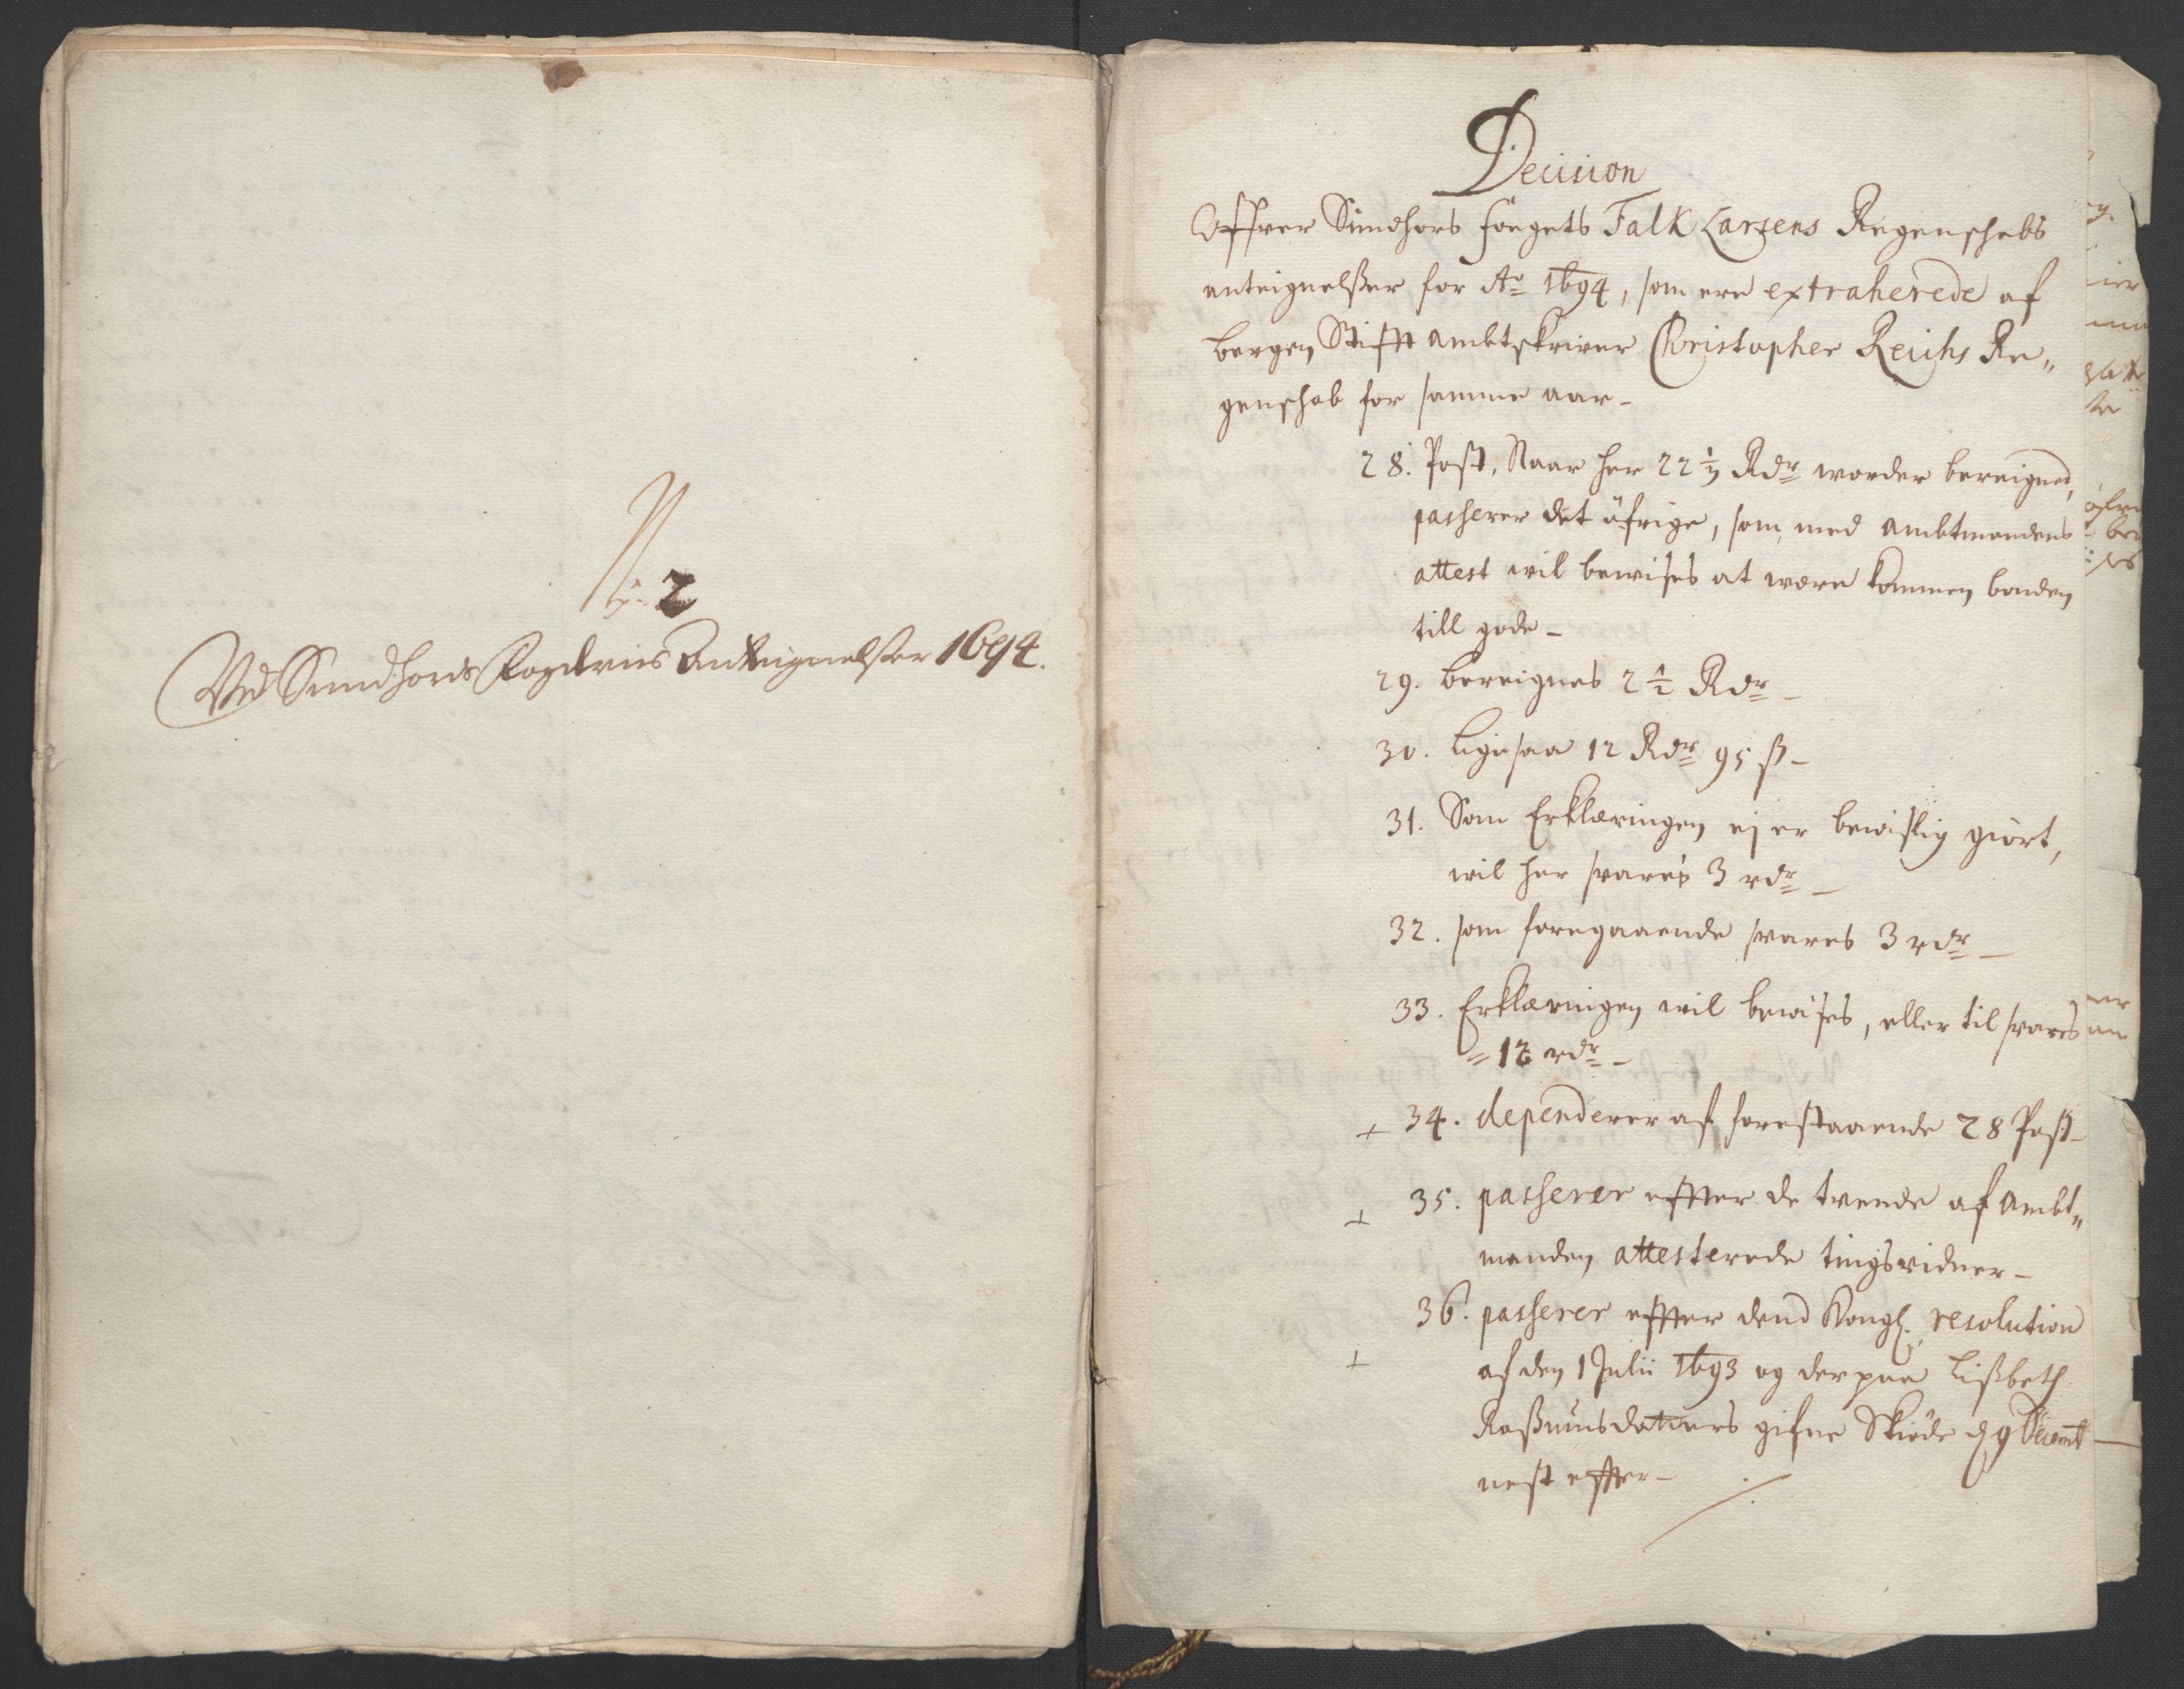 No: 2
Ved Sundhors Fogderies Anteignelßer 1694.
Decision
Offver Sundhors fougets Falk Larsens Regenschabs
anteignelßer for Ao 1694, som ere extraherede af
bergen Stifft ambtskriver Christopher Reichs Re„
genschab for samme aar–
28. Post, Naar her 22 1/2 Rdr worder bereigned,
passerer det öfrige, som med ambtmandens
attest vil bevises at være kommen bonden
till gode–
29. bereignes 2 1/2 Rdr–
30. ligesaa 12 Rdr 95 ß–
31. Som Erklæringen ej er bevislig giort,
vil her svares 3 rdr–
32. som foregaaende svares 3 rdr–
33. Erklæringen vil bevises, eller til svares
= 12 rdr–
+ 34. dependerer af forestaaende 28 Post–
+ 35. passerer effter de tvende af Ambt„
manden attesterede tingsvidner–
36. passerer effter dend Kongl. resolution
+ af den 1 Julii 1693 og der paa Lißbeth
Raßmusdatters gifne Skiöde d 9 Decemb
nest effter–